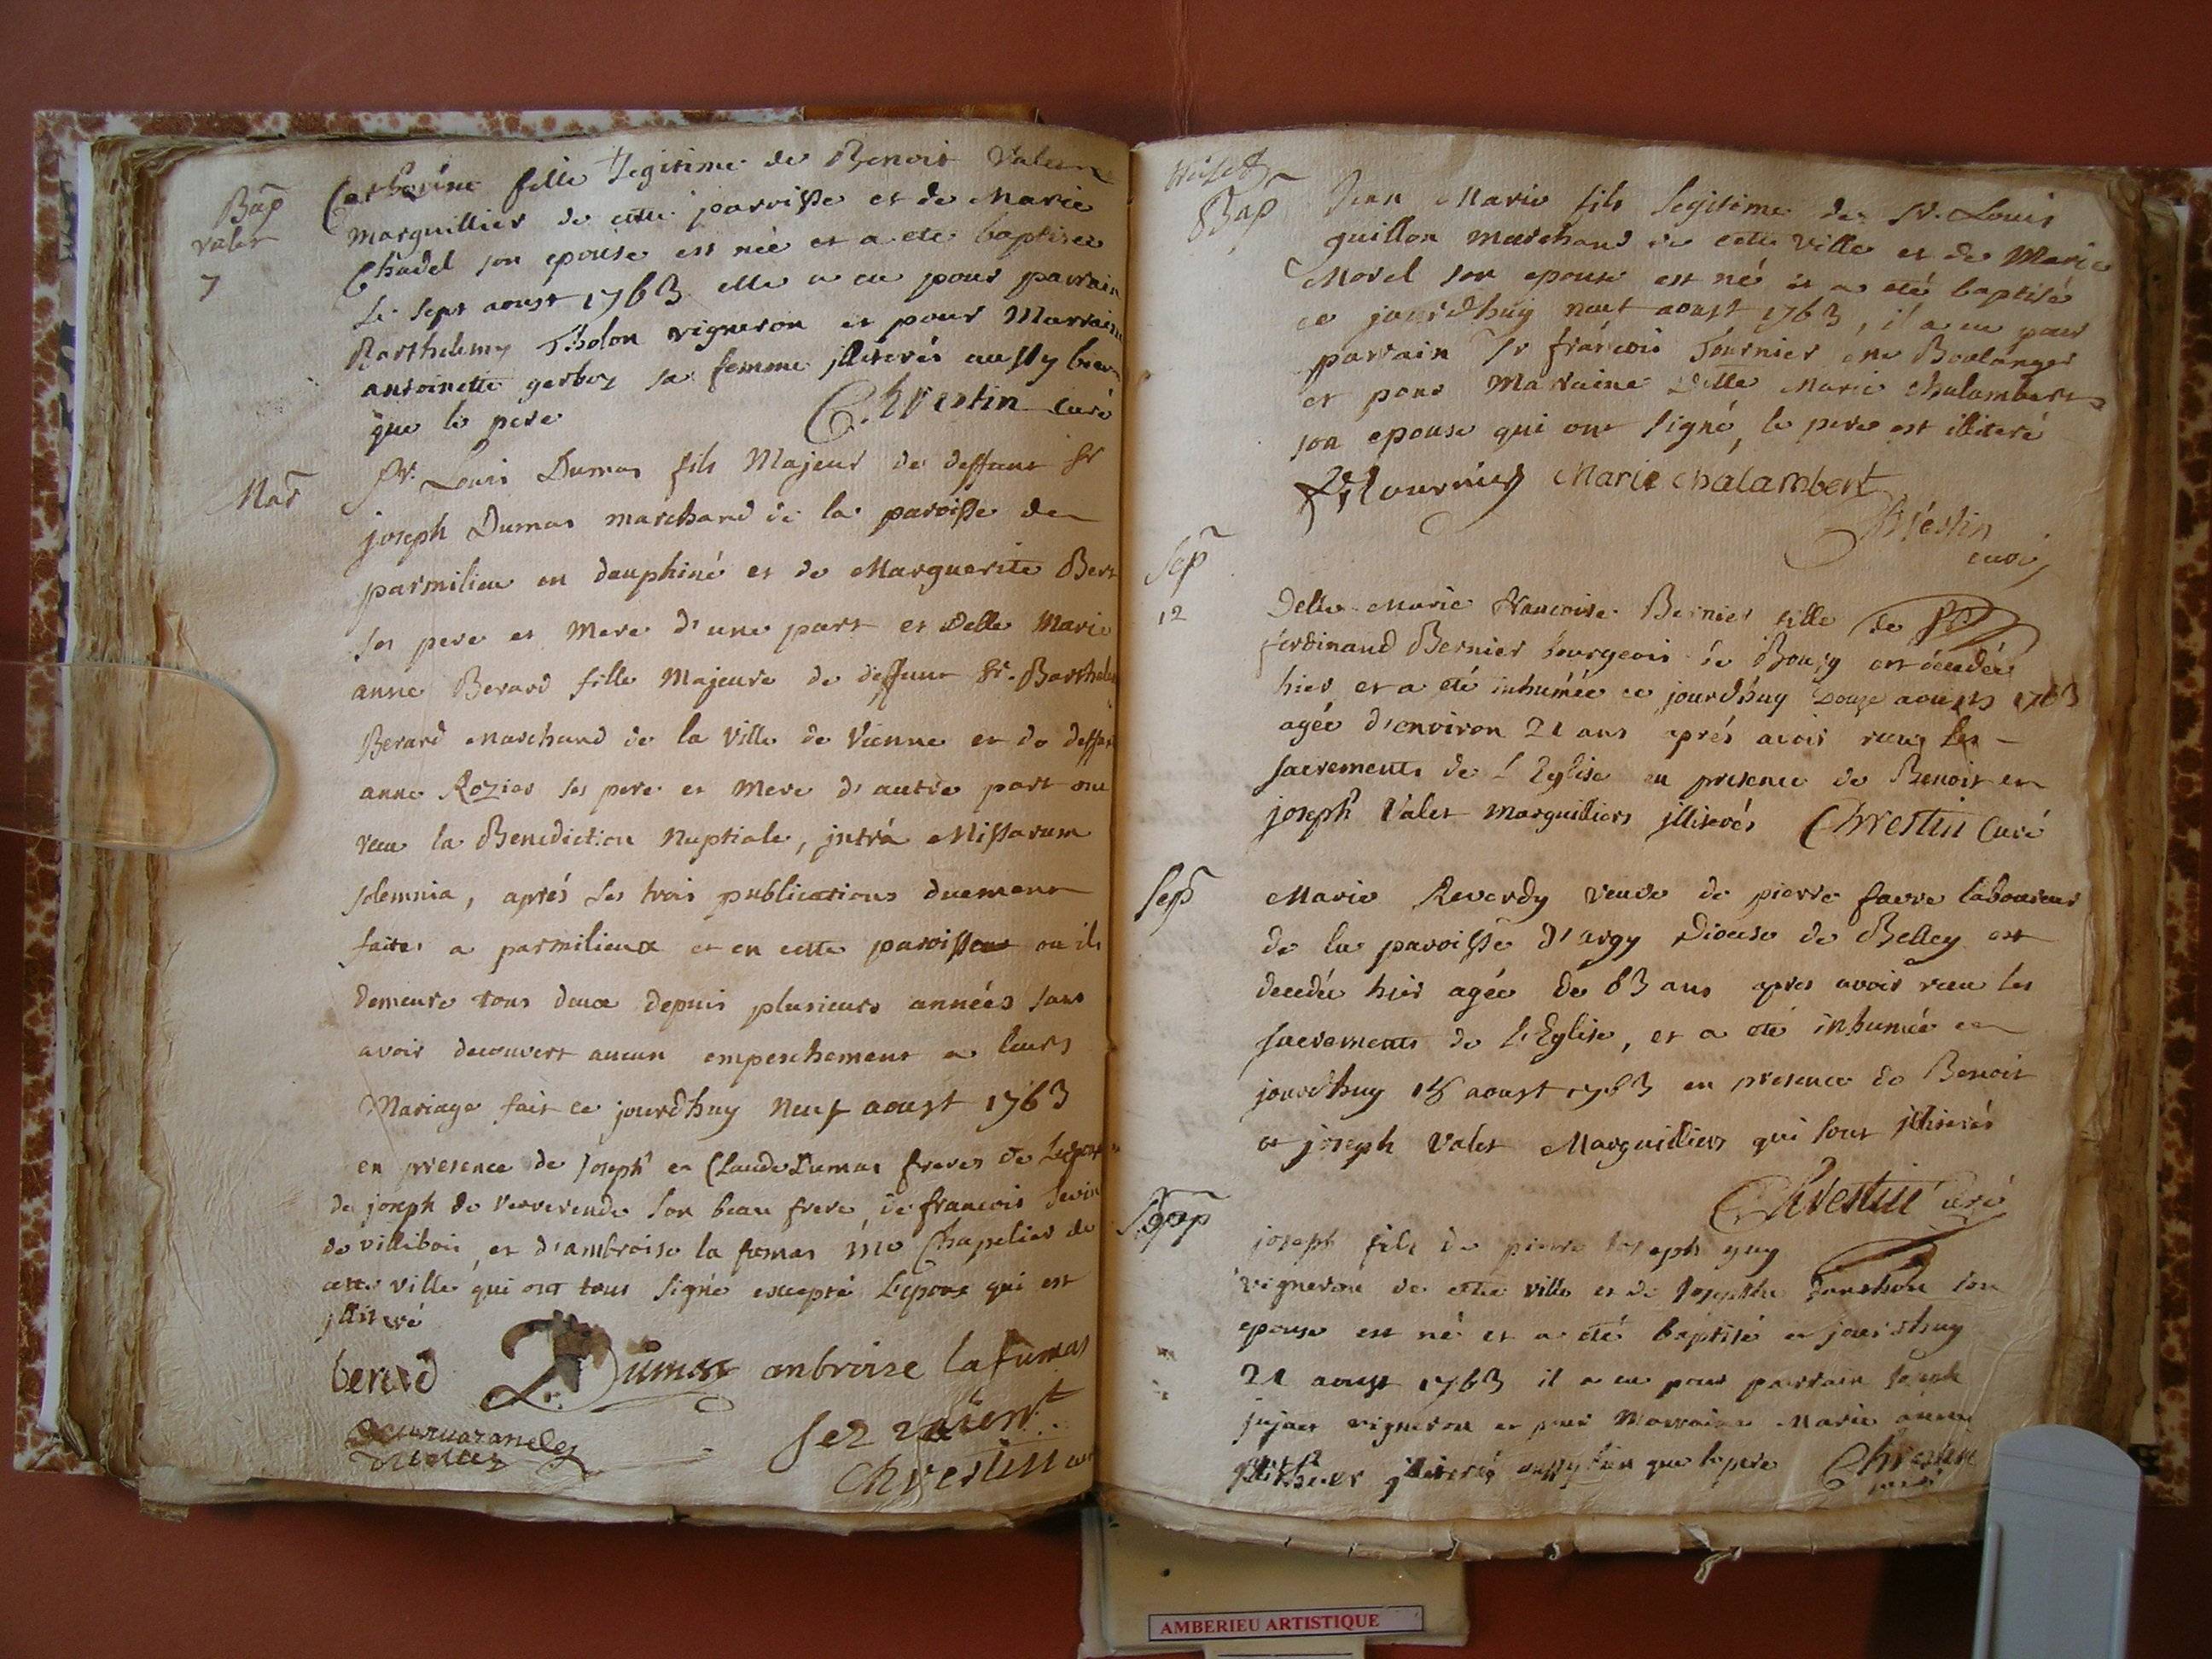 Bap
valet
7
Catherine fille legitime de Benoit Valet
marguillier de cette paroisse et de Marie
Chadel son epouse est née et a eté baptisée
Le sept aoust 1763 elle a eu pour parrain
Barthelemy Tholon vigneron et pour Marraine
antoinette gerboz sa femme jlliterés aussy bien
que le pere Chrestin curé
Mar
Sr. Louis Dumas fils Majeur de deffunt Sr
joseph Dumas marchand de la paroisse de
parmilieu en dauphiné et de Marguerite Bert
ses pere et Mere d'une part et Delle Marie
anne Berard fille Majeure de deffunt Sr. Barthele
Berard Marchand de la Ville de Vienne et de deffun
anne Rozier ses pere et Mere d'autre part ont
recu la Benediction Nuptiale, jntrá Missarum
solemnia, aprés les trois publications duement
faites a parmilieux et en cette paroisse ou ils
demeure tous deux depuis plusieurs années sans
avoir decouvert aucun empeschement a leurs
Mariage fait ce jourdhuy neuf aoust 1763
en presence de Joseph et Claude Dumas freres de Lepoux
de joseph de Ververende son beau frere, de francois
de villiboi, et d'ambroise la fumas Me Chapelier de
cette ville qui ont tous signé excepté L'epoux qui est
jlliteré
berard Dumas ambroise lafumas
Chrestin curé
Bap
Jean Marie fils legitime de Sr. Louis
guillon marchand de cette ville et de Marie
Morel son epouse est né et a eté baptisé
ce jourdhuy neuf aoust 1763, il a eu pour
parrain Sr francois Fournier Me Boulanger
et pour Maraine Delle Marie Chalambert
son epouse qui ont signé, le pere est illiteré
fournier Marie Chalambert
Chrestin
curé
Sep
12
Delle Marie Francoise Bernier fille de Sr
ferdinand Bernier bourgeois de Bourg est décedée
hier et a eté inhumée ce jourdhuy Douze aoust 1763
agée d'environ 21 ans aprés avoir recu les
sacrements de L'Eglise en presence de Benoit et
joseph Valet Marguilliers jlliterés Chrestin Curé
Sep
Marie Reverdy veuve de pierre favre laboureur
de la paroisse d'argy Diocese de Belley est
decedée hier agée de 83 ans apres avoir recu les
sacrements de L'Eglise, et a eté inhumée ce
jourdhuy 18 aoust 1763 en presence de Benoit
et joseph Valet Marguilliers qui sont jlliterés
Chrestin Curé
Bap
joseph fils de pierre joseph guy
vigneron de cette ville et de josephte son
epouse est né et a eté baptisé ce jourdhuy
21 aoust 1763 il a eu pour parrain joseph
vigneron et pour Marraine Marie anne
jlliterés aussy bien que le pere Chrestin
curé
AMBERIEU ARTISTIQUE